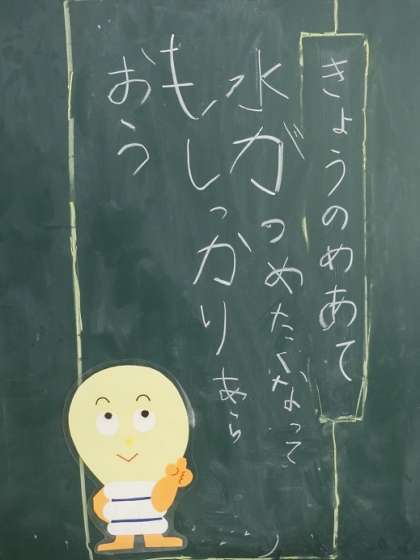 きょうのめあて
水がつめたくなって
もしっかりあら
おう